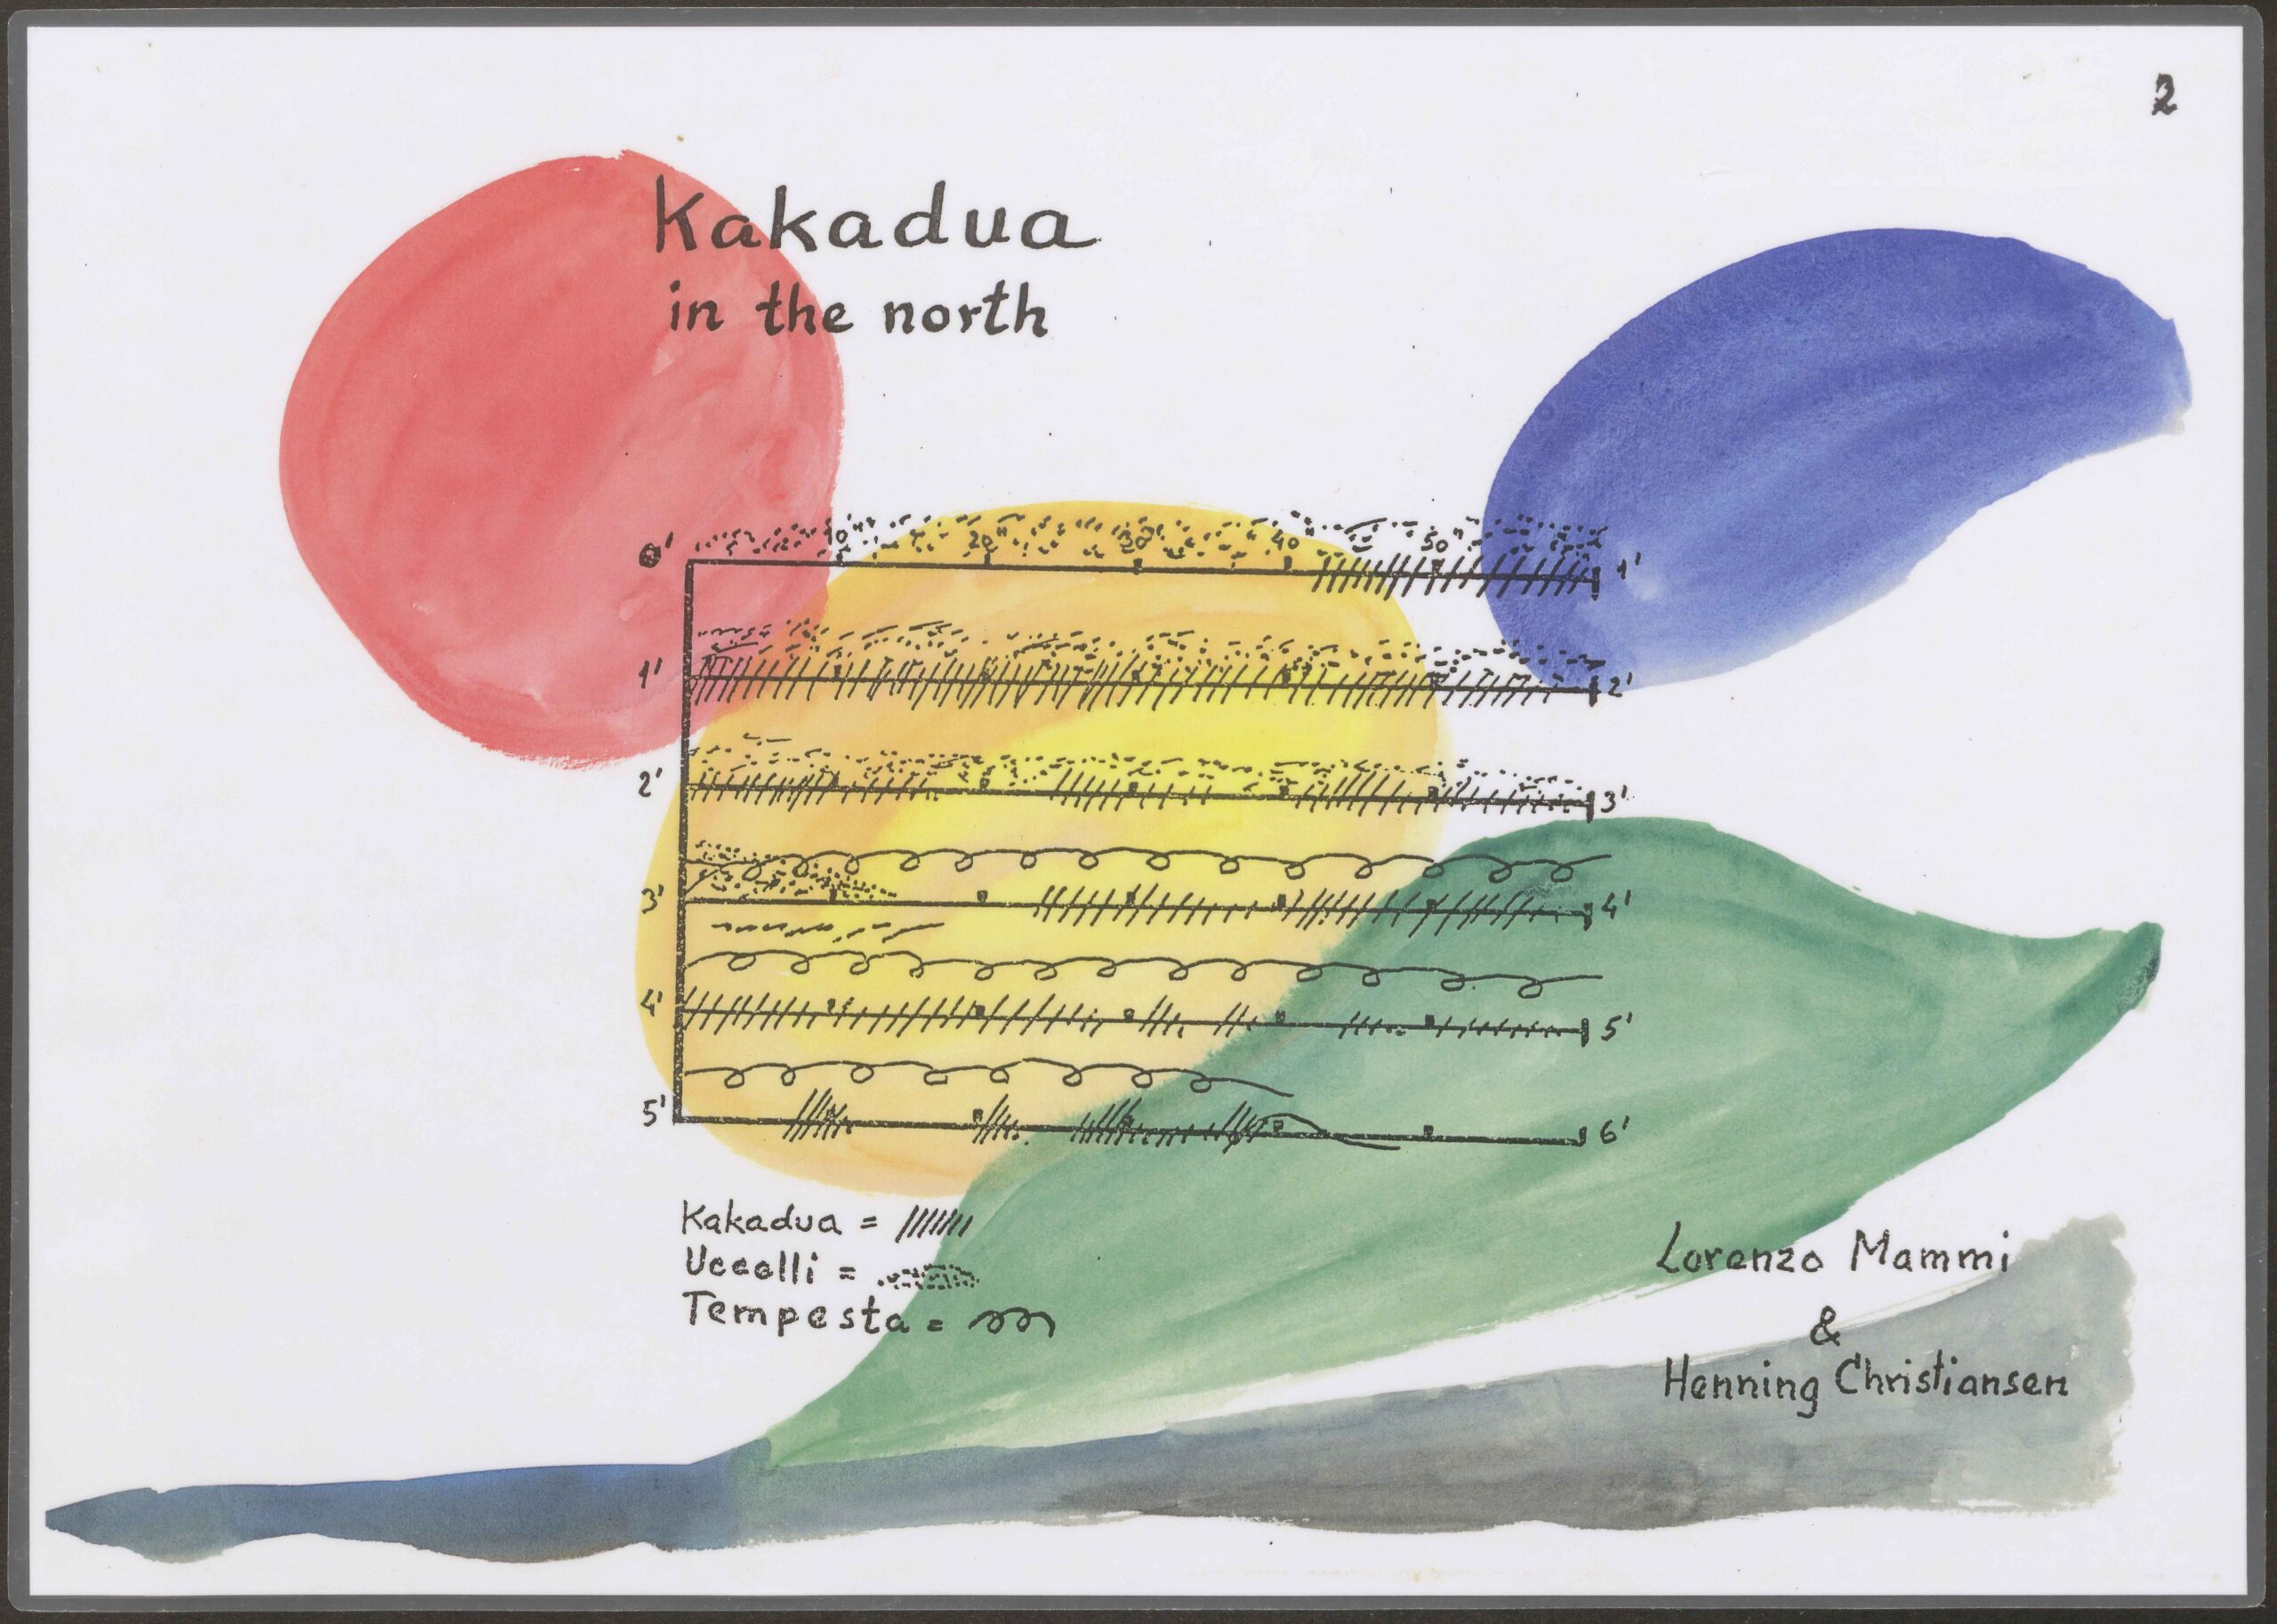 2
Kakadua
in the north
0' 10" 20" 30" 40" 50" 1'
1' 2'
2' 3'
3' 4'
4' 5'
5' 6'
Kakadua =
Uccelli =
Tempesta =
Lorenzo Mammi
&
Henning Christiansen